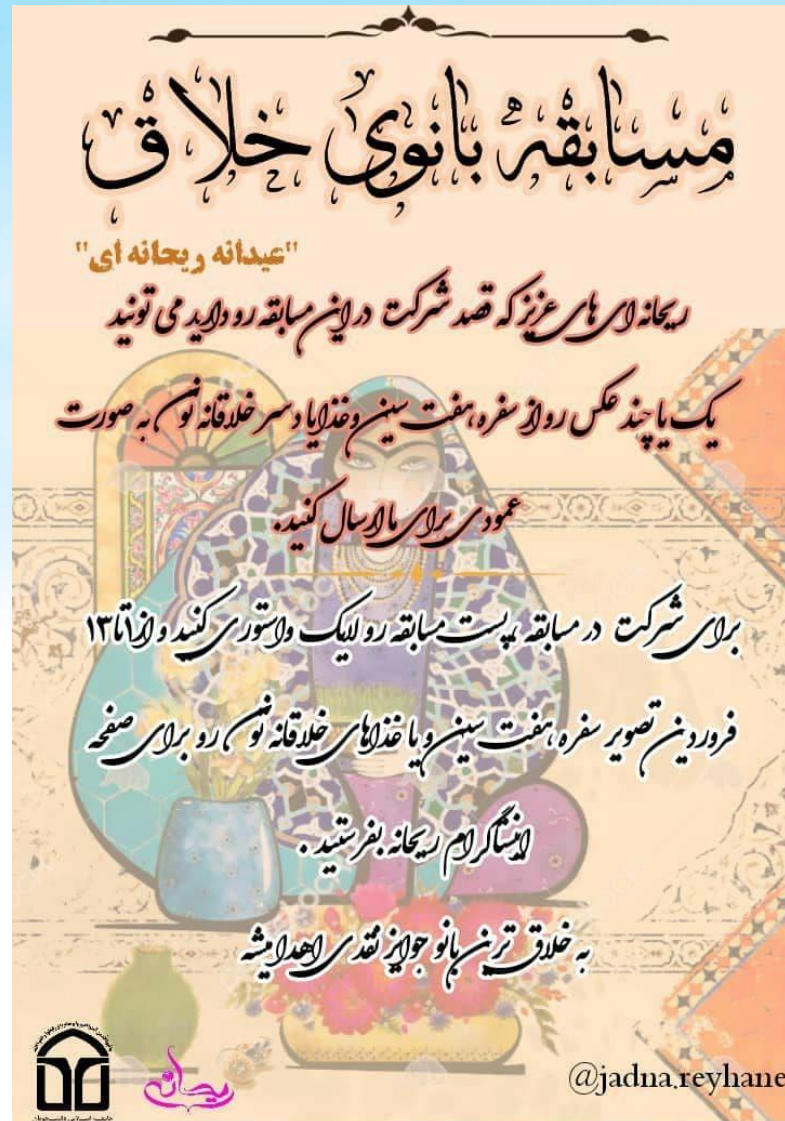 مسابقه بانوی خلاق
"عیدانه ریحانه ای"
ریحانه ای های عزیز که قصد شرکت در این مسابقه رو دارید می تونید
یک یا چند عکس رو از سفره هفت سین و غذا یا دسر خلاقانه تون به صورت
عمودی برای ما ارسال کنید.
برای شرکت در مسابقه ، پست مسابقه رو لایک و استوری کنید و از ۱ تا ۱۳
فروردین تصویر سفره هفت سین و یا غذاهای خلاقانه تون رو برای صفحه
اینستاگرام ریحانه بفرستید .
به خلاق ترین بانو جوایز نقدی اهدا میشه
@jadna.reyhane
ریحانه
جامعه اسلامی دانشجویان